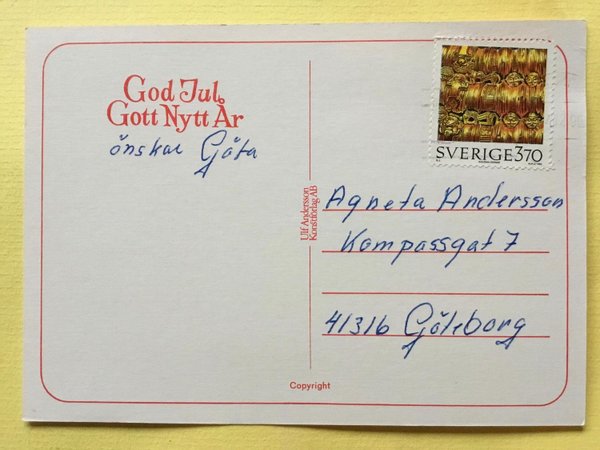 God Jul
Gott Nytt År
önskar Göta
SVERIGE 370
Ulf Andersson
Konstförlag AB
Agneta Andersson
Kompassgat 7
41316 Göteborg
Copyright